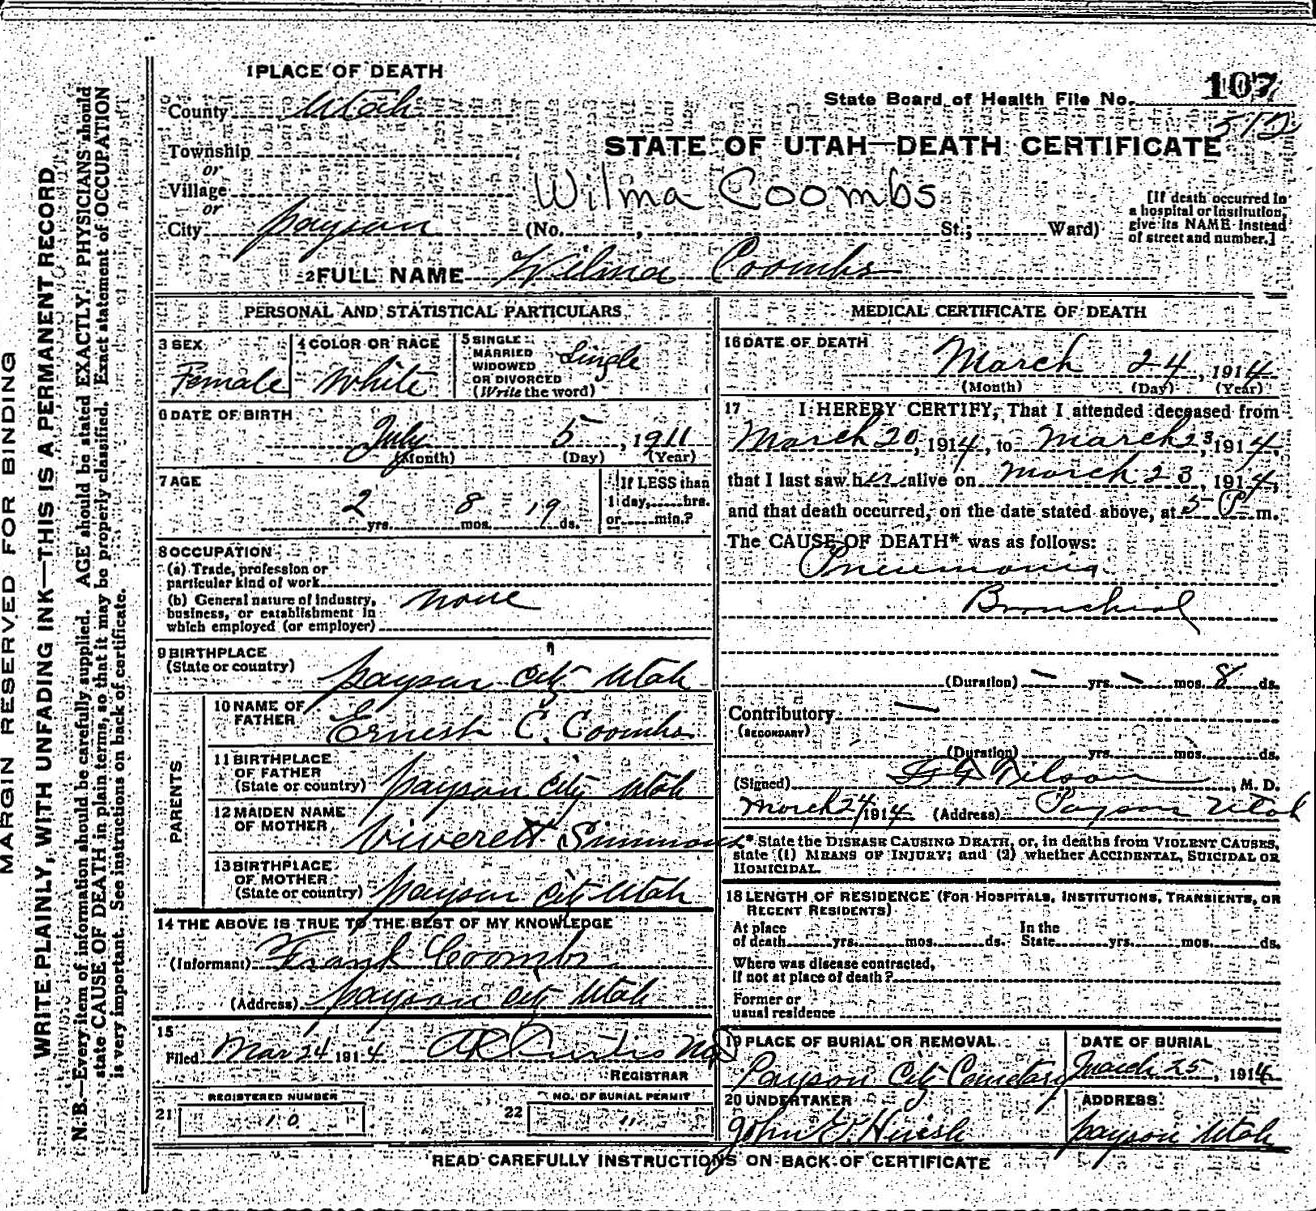 MARGIN RESERVED FOR BINDING
WRITE PLAINLY, WITH UNFADING INK—THIS IS A PERMANENT RECORD
N. B.—Every item of information should be carefully supplied. AGE should be stated EXACTLY. PHYSICIANS should
state CAUSE OF DEATH in plain terms, so that it may be properly classified. Exact statement of OCCUPATION
is very important. See instructions on back of certificate.
1 PLACE OF DEATH
County Utah
Township
or
Village
or
City Payson
State Board of Health File No. 107
512
STATE OF UTAH—DEATH CERTIFICATE
Wilma Coombs
(No. , St.; Ward)
[If death occurred in
a hospital or institution,
give its NAME instead
of street and number.]
2 FULL NAME Wilma Coombs
PERSONAL AND STATISTICAL PARTICULARS
3 SEX Female
4 COLOR OR RACE White
5 SINGLE
MARRIED
WIDOWED
OR DIVORCED
(Write the word) Single
6 DATE OF BIRTH
July 5, 1911
(Month) (Day) (Year)
7 AGE
2 yrs. 8 mos. 19 ds.
If LESS than
1 day, hrs.
or min.?
8 OCCUPATION
(a) Trade, profession or
particular kind of work
(b) General nature of industry,
business, or establishment in
which employed (or employer) none
9 BIRTHPLACE
(State or country) Payson City Utah
PARENTS
10 NAME OF
FATHER Ernest C. Coombs
11 BIRTHPLACE
OF FATHER
(State or country) Payson City Utah
12 MAIDEN NAME
OF MOTHER Viverett Simmons
13 BIRTHPLACE
OF MOTHER
(State or country) Payson City Utah
14 THE ABOVE IS TRUE TO THE BEST OF MY KNOWLEDGE
(Informant) Frank Coombs
(Address) Payson City Utah
15
Filed Mar 24 1914 A R Curtis MD
REGISTRAR
REGISTERED NUMBER
21 10
NO. OF BURIAL PERMIT
22 11
MEDICAL CERTIFICATE OF DEATH
16 DATE OF DEATH
March 24, 1914
(Month) (Day) (Year)
17 I HEREBY CERTIFY, That I attended deceased from
March 20, 1914, to March 23, 1914,
that I last saw her alive on March 23, 1914,
and that death occurred, on the date stated above, at 5 P m.
The CAUSE OF DEATH* was as follows:
Pneumonia
Bronchial
(Duration) — yrs. — mos. 8 ds.
Contributory —
(SECONDARY)
(Duration) yrs. mos. ds.
(Signed) Nelson, M. D.
March 24, 1914 (Address) Payson Utah
* State the DISEASE CAUSING DEATH, or, in deaths from VIOLENT CAUSES,
state (1) MEANS OF INJURY; and (2) whether ACCIDENTAL, SUICIDAL OR
HOMICIDAL.
18 LENGTH OF RESIDENCE (FOR HOSPITALS, INSTITUTIONS, TRANSIENTS, OR
RECENT RESIDENTS)
At place
of death yrs. mos. ds.
In the
State yrs. mos. ds.
Where was disease contracted,
If not at place of death?
Former or
usual residence
19 PLACE OF BURIAL OR REMOVAL
Payson City Cemetary
DATE OF BURIAL
March 25, 1914
20 UNDERTAKER
John E.
ADDRESS
Payson Utah
READ CAREFULLY INSTRUCTIONS ON BACK OF CERTIFICATE